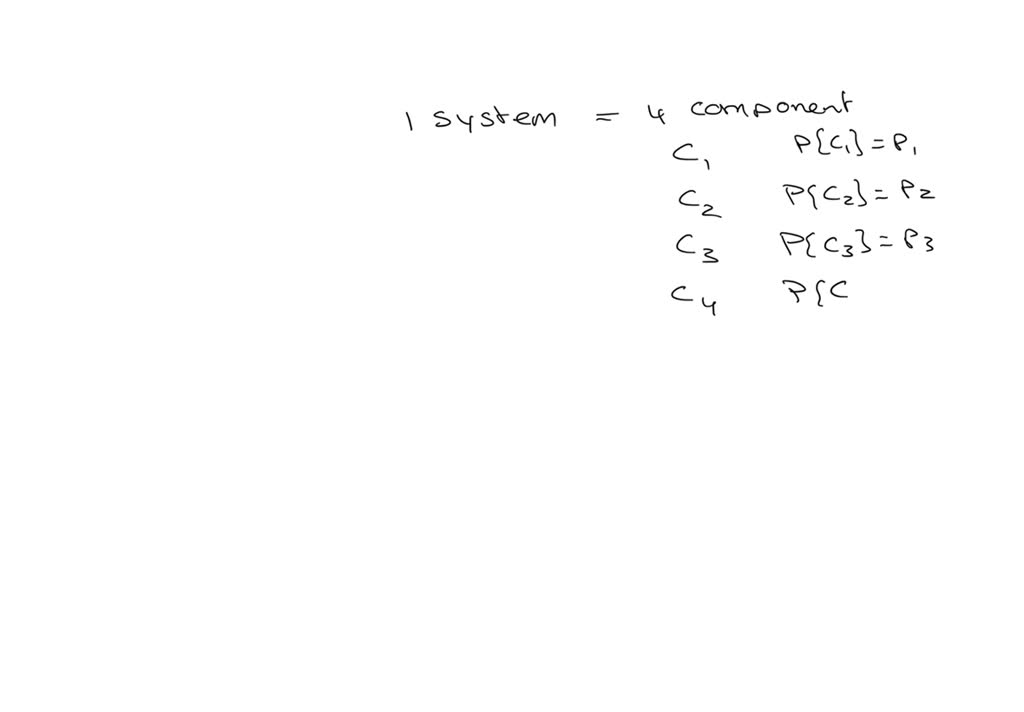 1 system = 4 component
C₁ P{C₁} = P₁
C₂ P{C₂} = P₂
C₃ P{C₃} = P₃
C₄ P{C